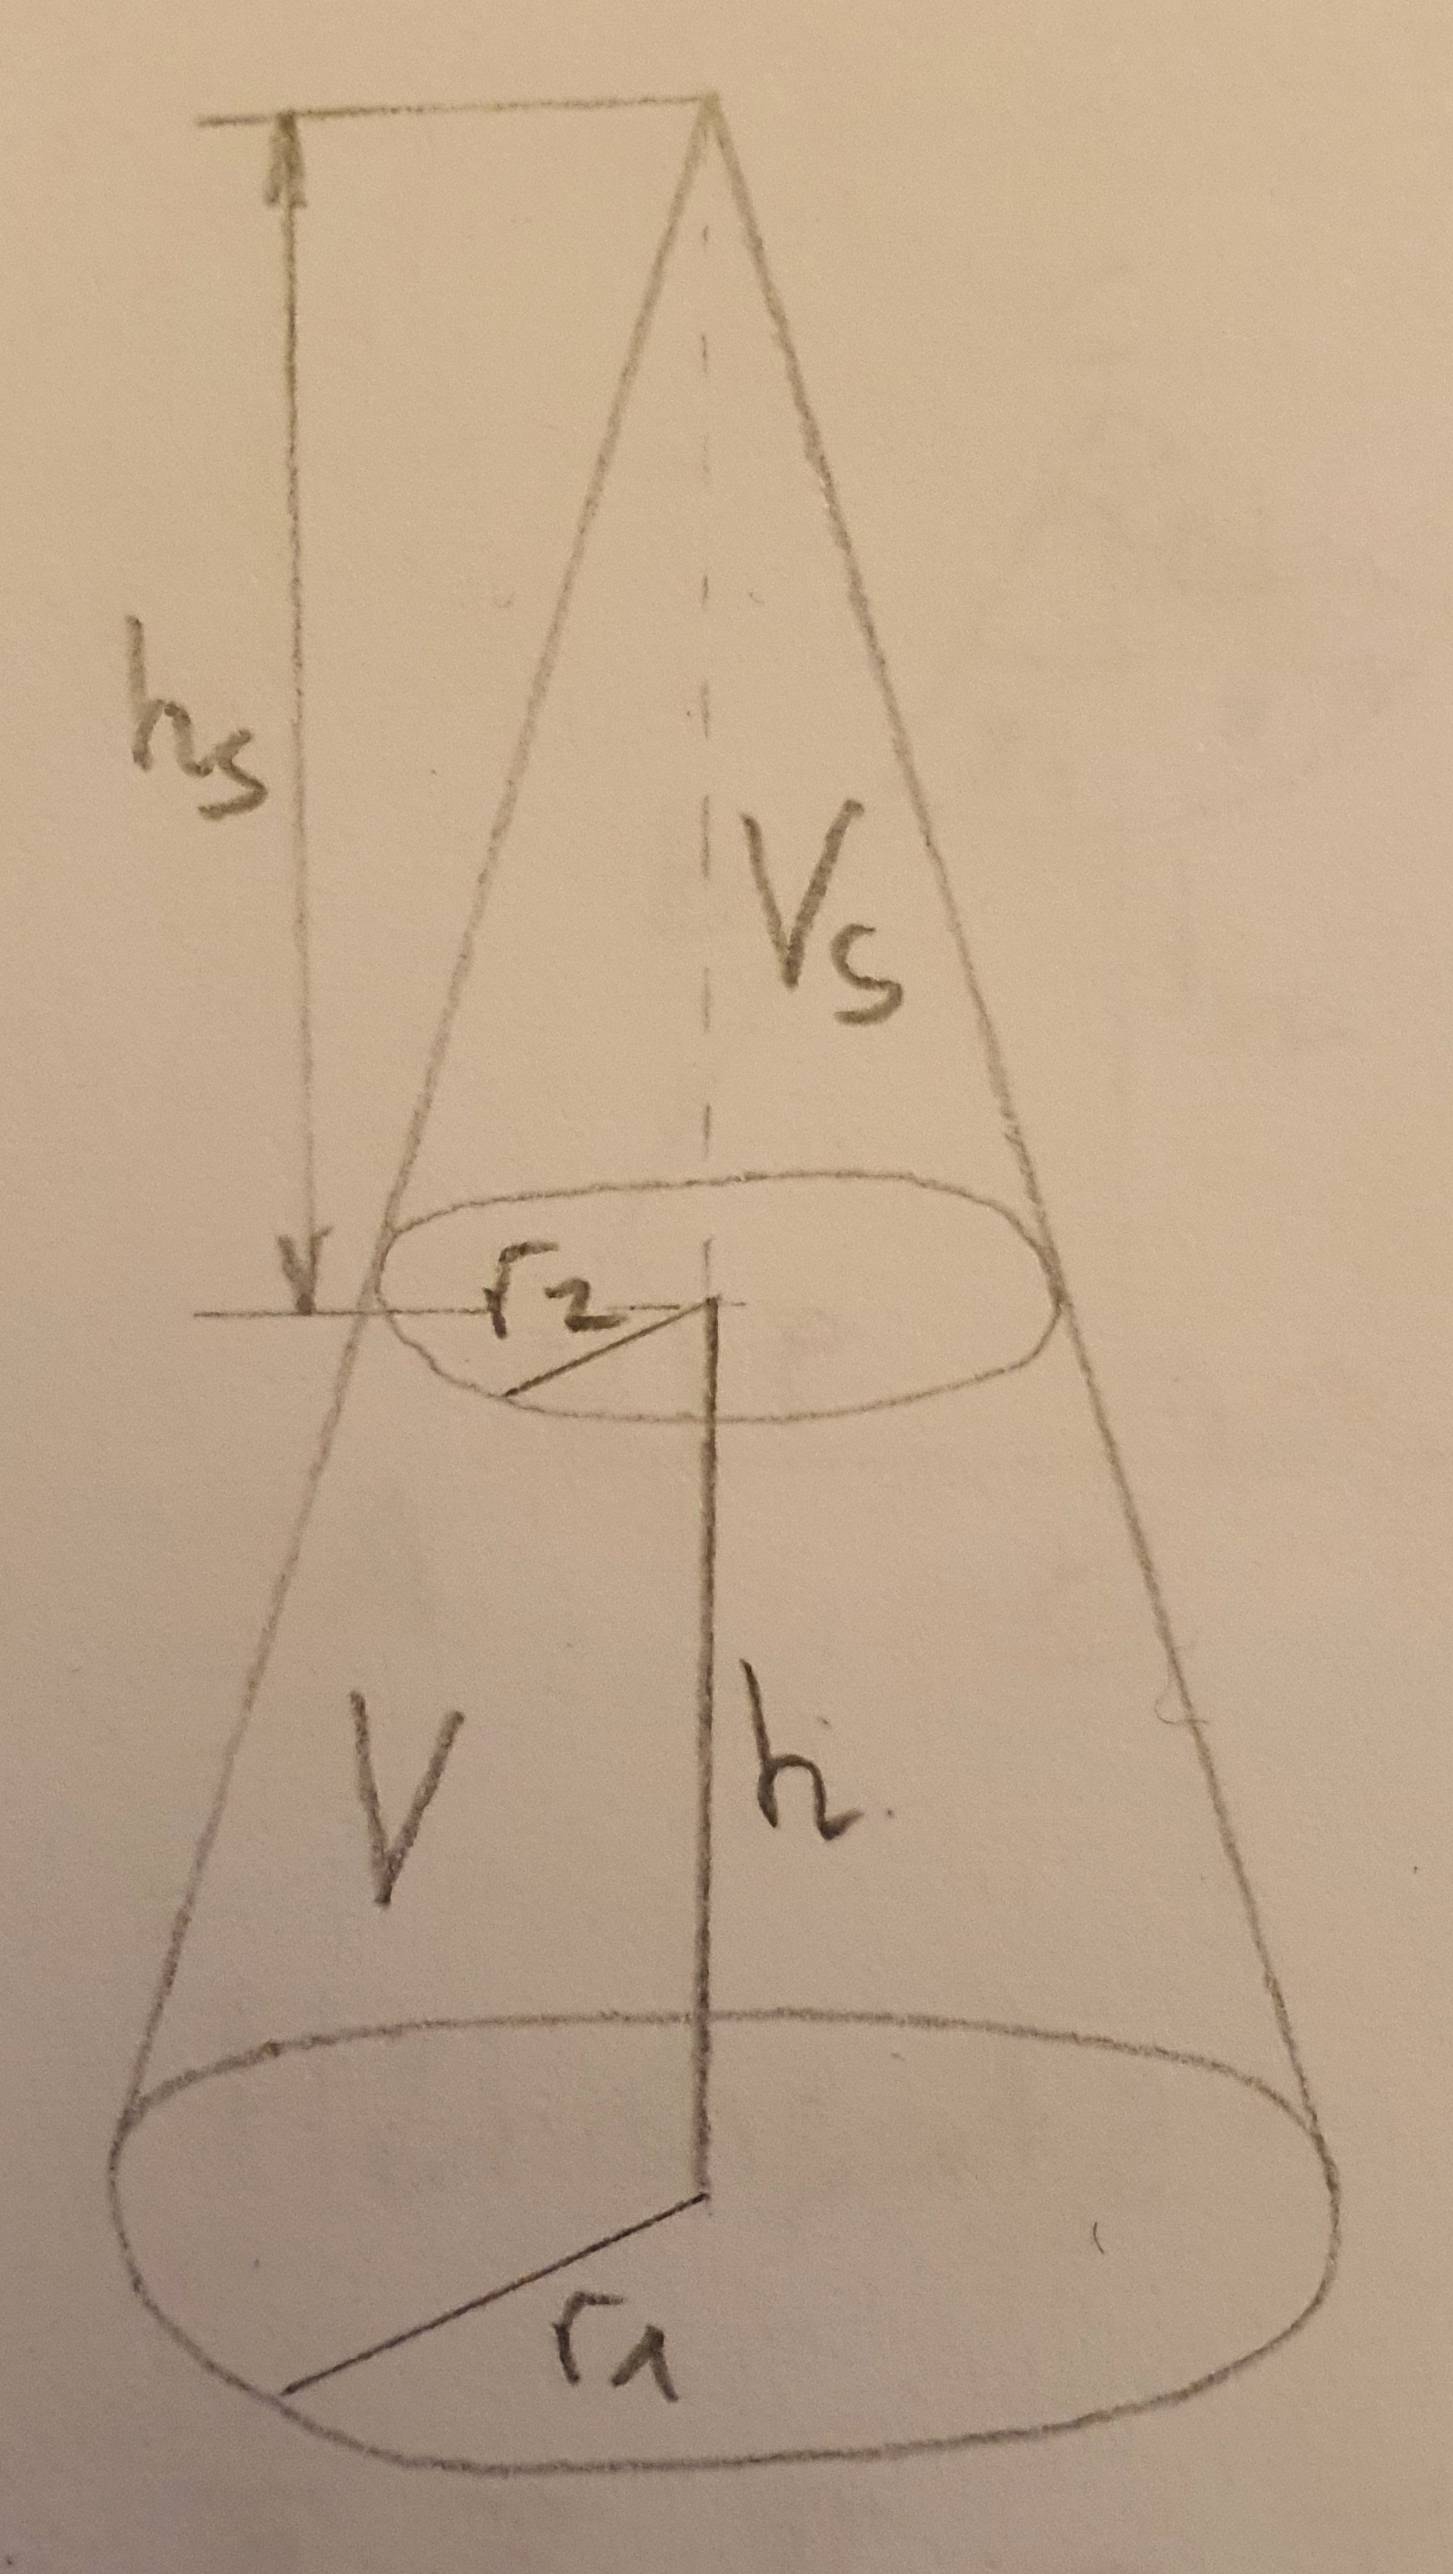 hs
Vs
r2
V
h
r1